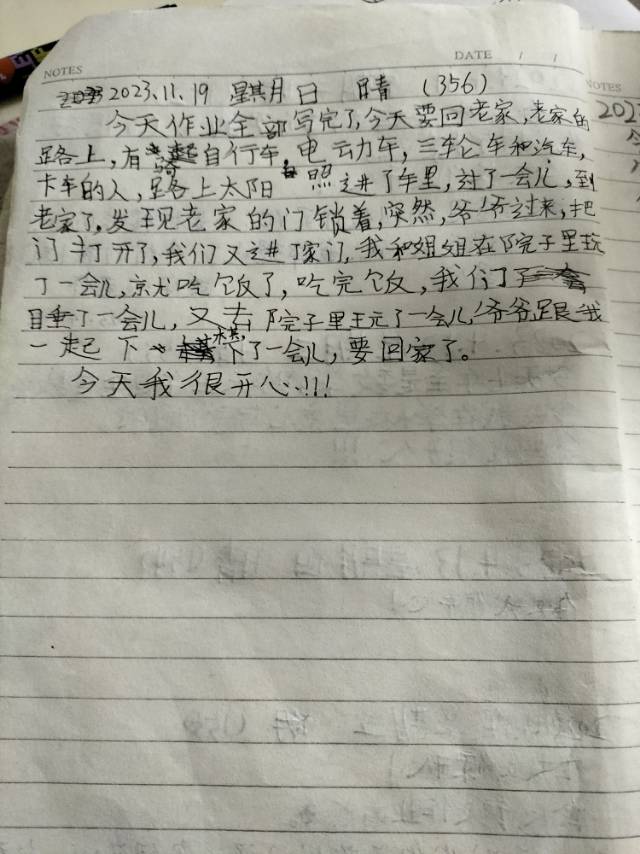 NOTES
DATE / /
2023.11.19 星期日 晴 (356)
今天作业全部写完了,今天要回老家,老家的
路上,有骑自行车,电动车,三轮车和汽车,
卡车的人,路上太阳照进了车里,过了一会儿,到
老家了,发现老家的门锁着,突然,爷爷过来,把
门打开了,我们又进了家门,我和姐姐在院子里玩
了一会儿,就吃饭了,吃完饭,我们
睡了一会儿,又去院子里玩了一会儿,爷爷跟我
一起下棋下了一会儿,要回家了。
今天我很开心!!!
NOTES
202